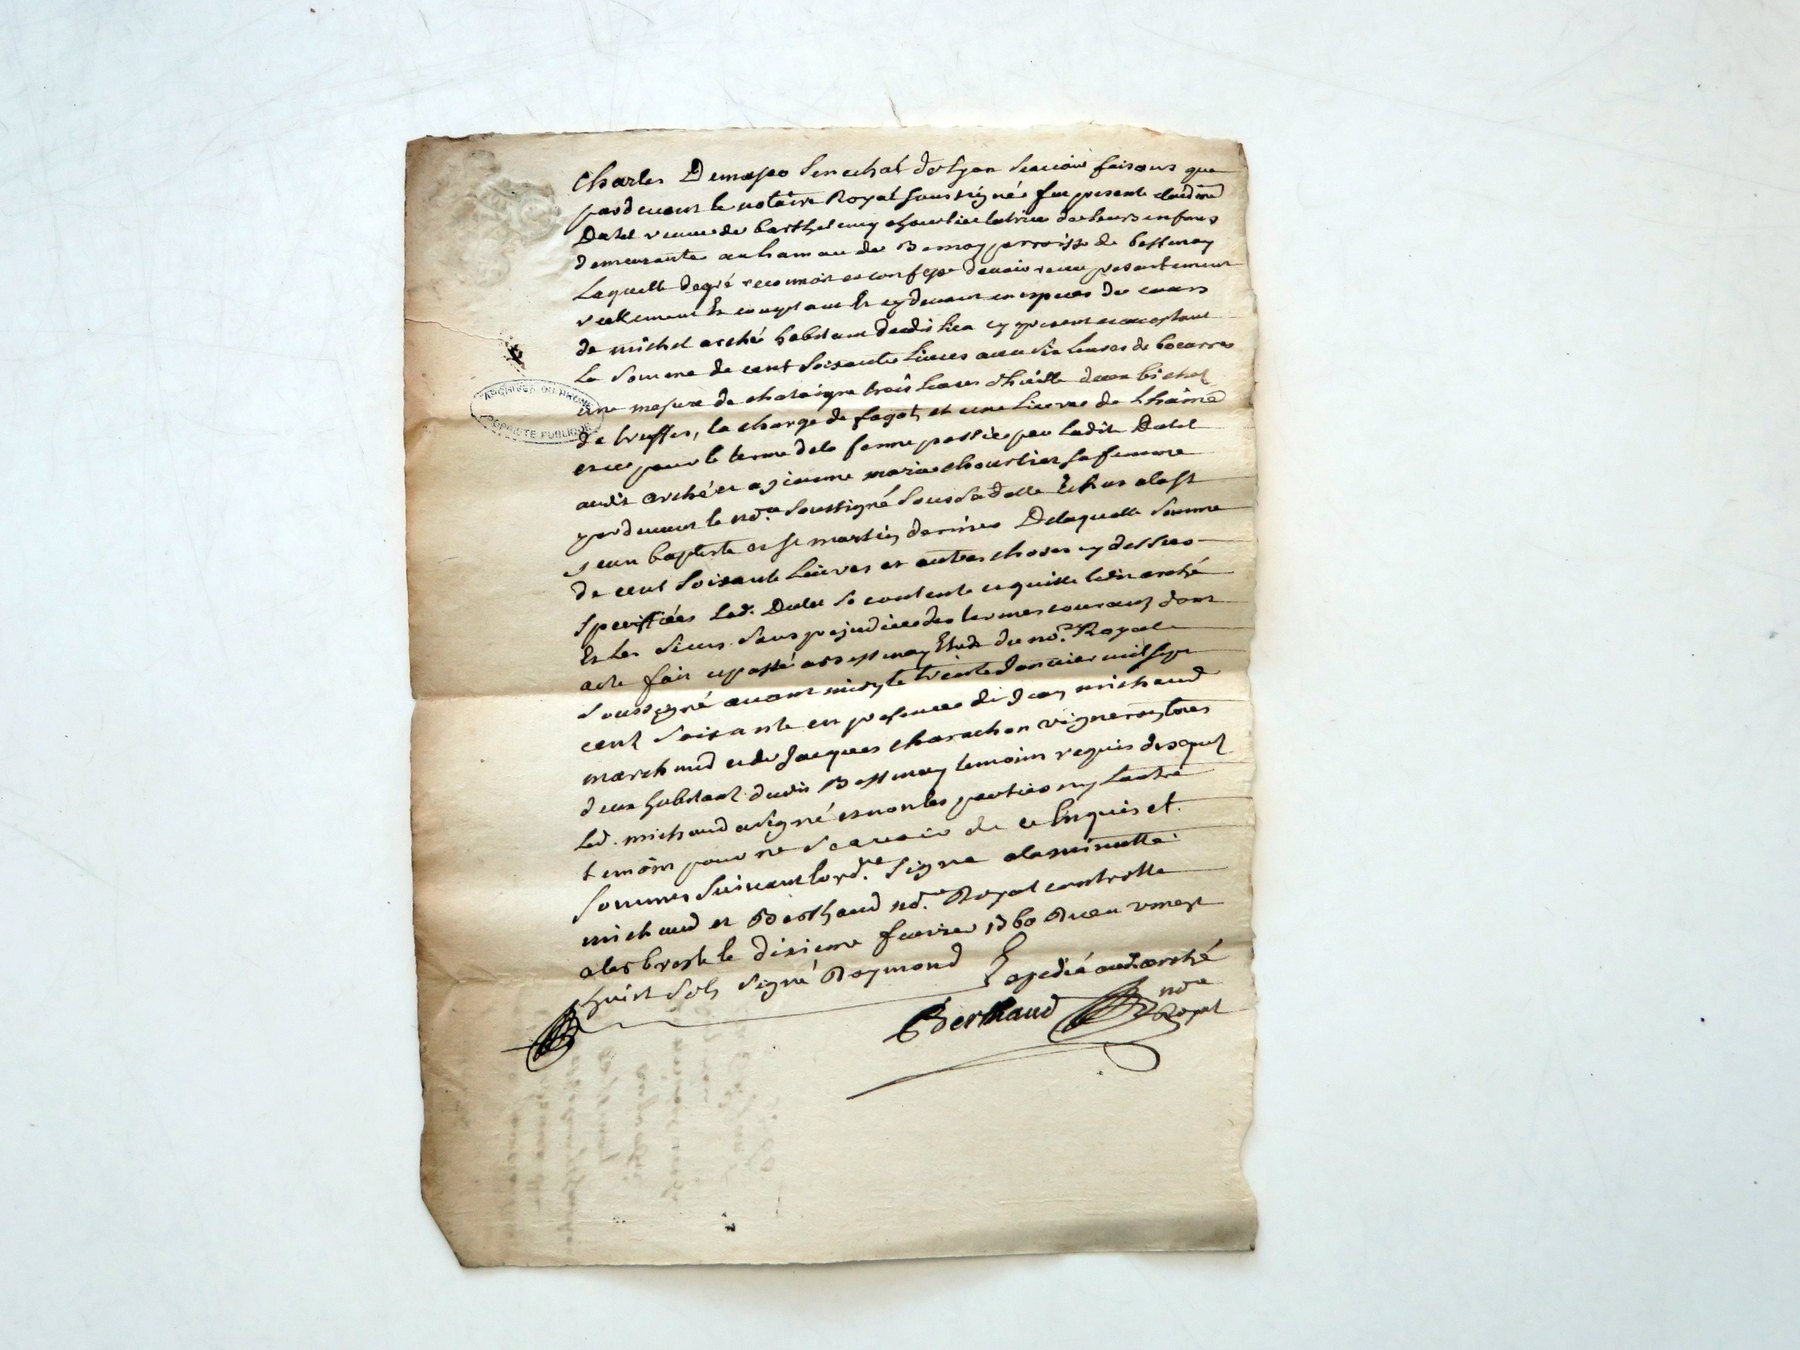 Charles Demaseo Senechal de Lyon scavoir faisons que
pardevant le notaire Royal soussigné fut presente claudine
Dutel veuve de barthelemy chourlier tutrice de leurs enfans
demeurante au hameau de Bernay parroisse de bessenay
Laquelle de gré reconnoit et confesse d'avoir receu presentement
reellement Et comptant Et cy devant en especes de cours
de michel arché habitant dudit lieu cy present et acceptant
La somme de cent soixante livres avec six livres de beurre
une mesure de chataigne trois livres d'huille deux bichet
de truffes, la charge de fagot et une livre de
ARCHIVES DU RHONE
PROPRIETE PUBLIQUE
et ce pour le terme de la ferme passée par ladite Dutel
audit arché et a jeanne marie chourlier sa femme
pardevant le no.re soussigné sous sa datte Echus a la st
jean baptiste et st martin derniers De laquelle somme
de cent soixante livres et autres choses cy dessus
speciffiées Lad. Dutel se contente et quitte ledit arché
Et les siens sans prejudice des termes courants dont
acte fait et passé a bessenay Etude du no.re Royal
soussigné avant midy le trente Janvier mil sept
cent soixante en presence de Jean michaud
marchand et de Jacques charachon vigneron tous
deux habitant dudit Bessenay temoins requis desquels
led. michaud a signé et non les parties ny l'autre
temoin pour ne scavoir de ce Enquis et
sommés suivant l'ord.ce signé a la minutte
michaud et Berthaud no.re Royal controllé
a larbresle le dixieme fevrier 1760 Receu vingt
huit sols signé Raymond Expedié audit arché
Berthaud no.re
Royal